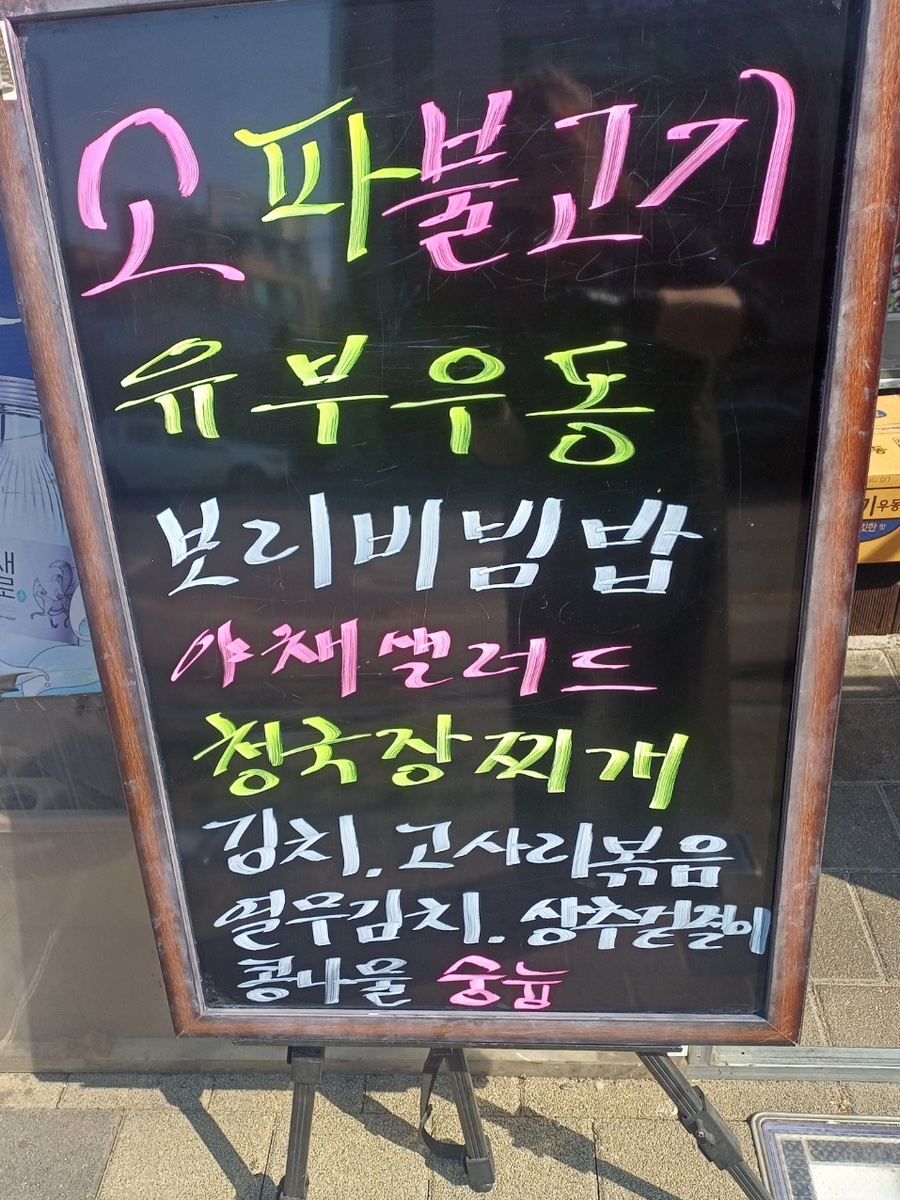 소파불고기
유부우동
보리비빔밥
야채샐러드
청국장찌개
김치. 고사리볶음
열무김치. 상추겉절이
콩나물 숭늉
새로
기우동